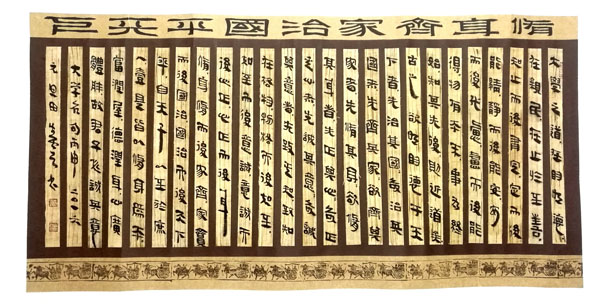 脩身齊家治國平天下
大學之道在明明德
在親民在止於至善
知止而後有定定而後
能靜靜而後能安安
而後能慮慮而後能
得物有本末事有終
始知其先後則近道矣
古之欲明明德于天
下者先治其國欲治其
國者先齊其家欲齊其
家者先脩其身欲脩
其身者先正其心欲正
其心者先誠其意欲誠
其意者先致其知致知
在格物物格而後知至
知至而後意誠意誠而
後心正心正而後身
脩身脩而後家齊家齊
而後國治國治而後天下
平自天子以至於庶
人壹是皆以脩身為本
富潤屋德潤身心廣
體胖故君子必誠其意
大學名句丙申二〇一六